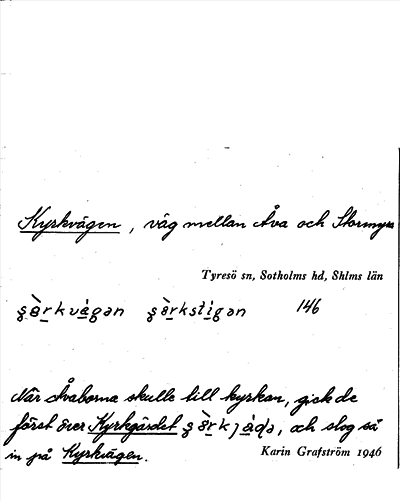 Kyrkvägen, väg mellan Åva och Stormyra
Tyresö sn, Sotholms hd, Shlms län
146
När Åvaborna skulle till kyrkan, gick de
först över Kyrkgärdet, och slog så
in på Kyrkvägen.
Karin Grafström 1946